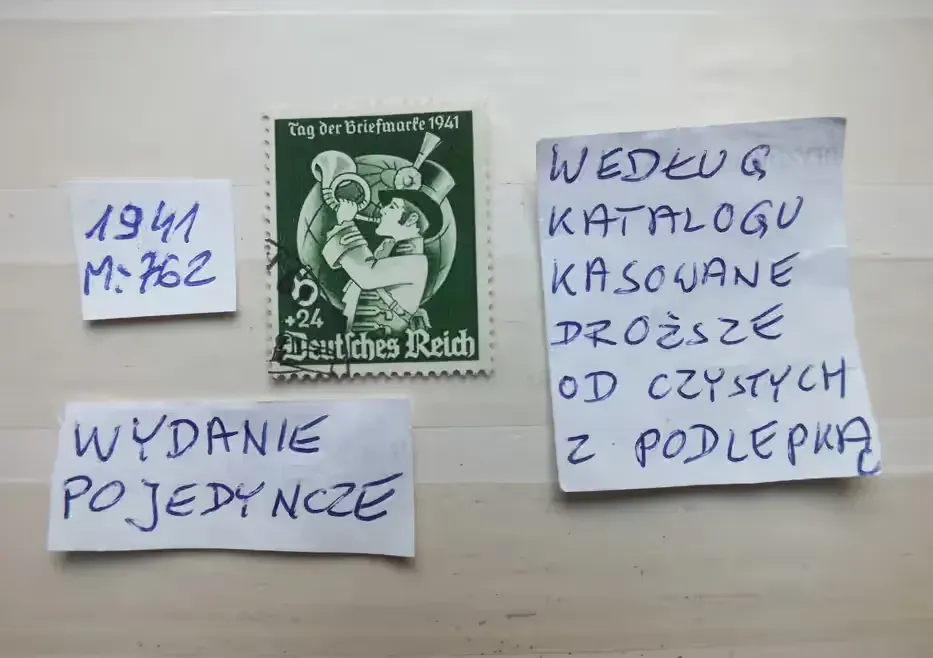 1941
Mi 762
Tag der Briefmarke 1941
6
+24
Deutsches Reich
WYDANIE
POJEDYNCZE
WEDŁUG
KATALOGU
KASOWANE
DROŻSZE
OD CZYSTYCH
Z PODLEPKĄ